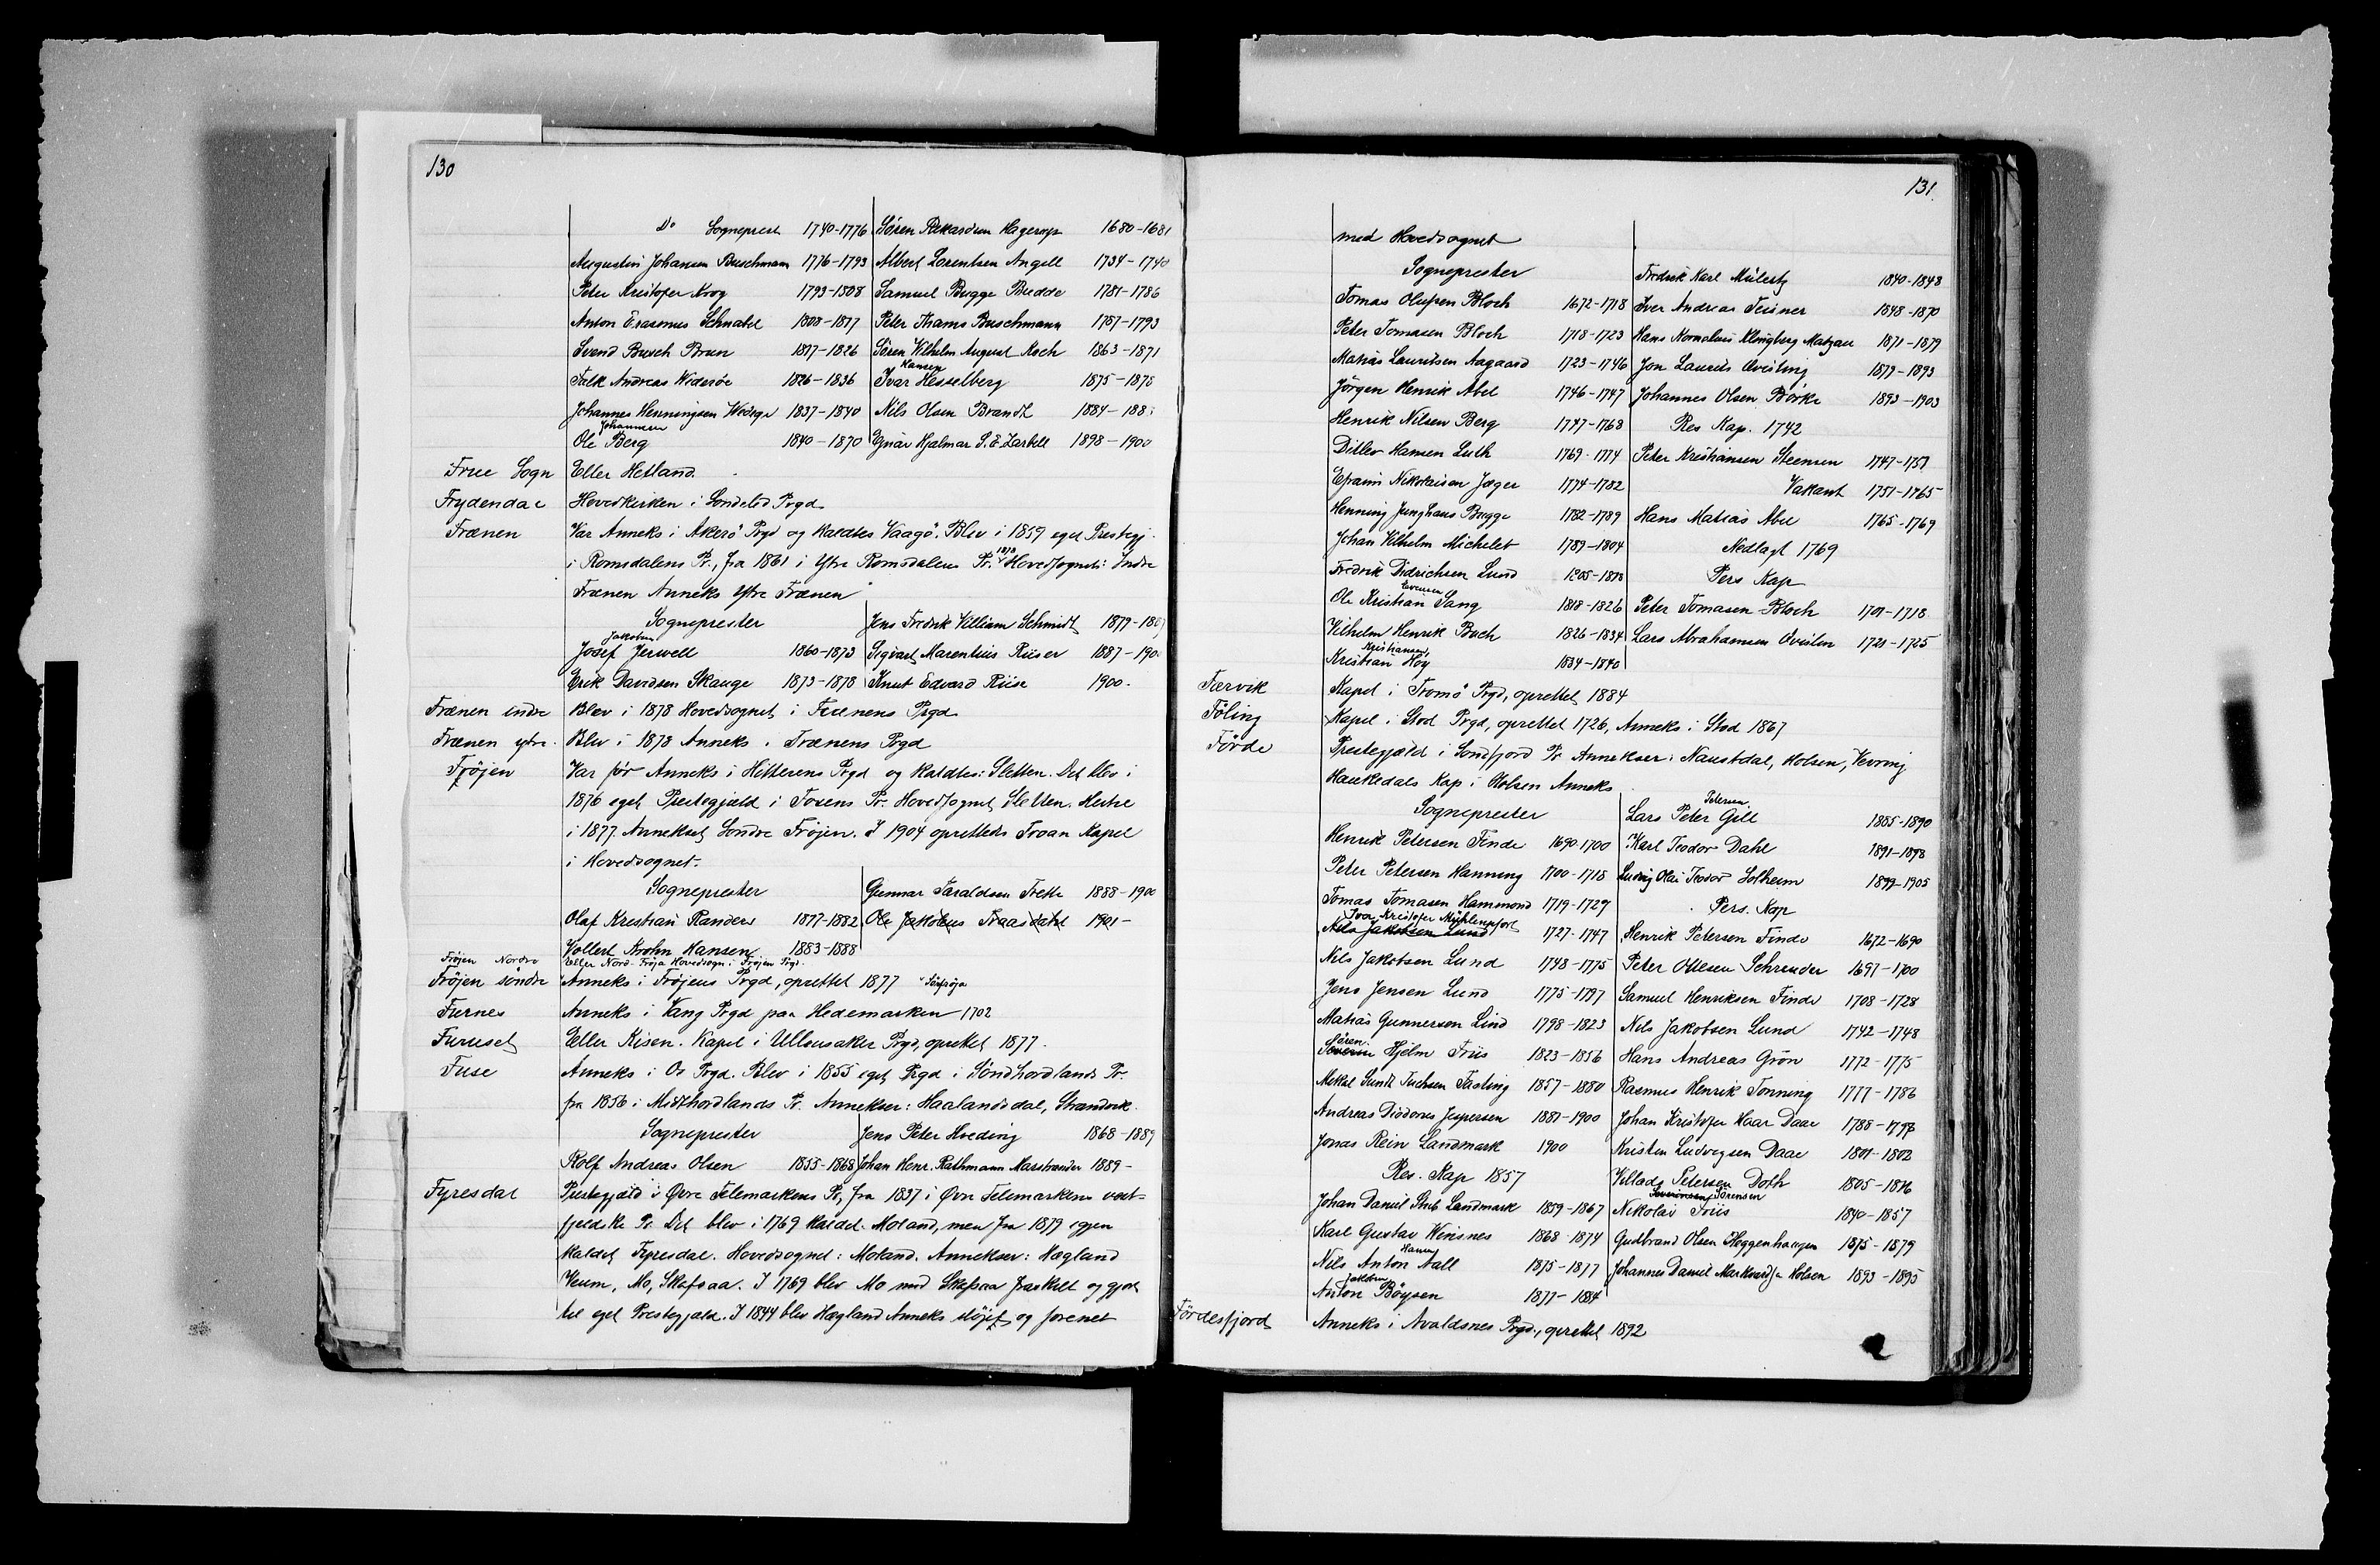 130
Do Sogneprest 1740-1776 Søren Rikardsen Hagerup 1680-1681
Augustin Johansen Buschmann 1776-1793 Albert Lorentsen Angell 1734-1740
Peter Kristofer Krog 1793-1808 Samuel Bugge Budde 1781-1786
Anton Erasmus Schnabel 1808-1817 Peter Thams Buschmann 1787-1793
Svend Busch Brun 1817-1826 Søren Vilhelm August Koch 1863-1871
Hansen
Falk Andreas Widerøe 1826-1836 Ivar Hesselberg 1875-1878
Johannes Henningsen Wedege 1837-1840 Nils Olsen Brandt 1884-188
Johannesen
Ole Berg 1840-1870 Hjalmar S. E. 1898-1900
Frue Sogn Eller Hetland.
Frydendal Hovedkirken i Søndeled Prgd.
Frænen Var Anneks i Akerø Prgd og kaldtes Vaagø. Blev i 1859 eget Prestegj.
i Romsdalens Pr., fra 1861 i Ytre Romsdalens Pr. 1878 Hovedsognet: Indre
Frænen Anneks Ytre Frænen
Sogneprester Jens Fredrik Villiam Schmidt 1879-188
Jakobsen
Josef Jervell 1860-1873 Sigvart Marentius Riiser 1887-190
Erik Davidsen Skauge 1873-1878 Knut Edvard Riise 1900.
Frænen indre Blev i 1878 Hovedsognet i Frænens Prgd
Frænen ytre. Blev i 1878 Anneks i Frænens Prgd
Frøjen Var før Anneks i Hitterens Prgd og kaldtes: Sletten. Det blev i
1876 eget Prestegjæld i Fosens Pr. Hovedsognet Sletten. Hertil
i 1877 Annekset Søndre Frøjen. I 1904 oprettedes Froan Kapel
i Hovedsognet.
Sogneprester Gunnar Taraldsen Trette 1888-1900
Olaf Kristian Randers 1877-1882 Ole Jakobus Fraasdahl 1901-
Vollert Krohn Hansen 1883-1888
Frøjen Nordre Eller Nord-Frøja Hovedsogn i Frøjen Prgd.
Frøjen søndre Anneks i Frøjens Prgd, oprettet 1877 Sørfrøja
Furnes Anneks i Vang Prgd paa Hedemarken 1702
Furuset Eller Risen. Kapel i Ullensaker Prgd, oprettet 1877.
Fuse Anneks i Os Prgd. Blev i 1855 eget Prgd i Søndhordlands Pr.
fra 1856 i Midthordlands Pr. Annekser: Haalandsdal, Strandvik.
Sogneprester Jens Peter Hveding 1868-1889
Rolf Andreas Olsen 1855-1868 Johan Henr. Rathmann Marstrander 1889-
Fyresdal Prestegjæld i Øvre Telemarkens Pr, fra 1837 i Øvre Telemarkens vest-
fjeldske Pr. Det blev i 1769 kaldet Moland, men fra 1879 igjen
kaldet Fyresdal. Hovedsognet: Moland. Annekser: Hægland
Veum, Mo, Skafsaa. I 1769 blev Mo med Skafsaa fraskilt og gjort
til eget Prestegjæld. I 1844 blev Hægland Anneks sløjfet og forenet
131.
med Hovedsognet
Sogneprester Fredrik Karl Mülertz 1840-1848
Tomas Olufsen Bloch 1672-1718 Iver Andreas Teisner 1848-1870
Peter Tomasen Bloch 1718-1723 Hans Kornelius Klingberg Matzau 1871-1879
Matias Lauritsen Aagaard 1723-1746 Jon Laurits Qvisling 1879-1893
Jørgen Henrik Abel 1746-1747 Johannes Olsen Børke 1893-1903
Henrik Nilsen Berg 1747-1768 Res Kap. 1742
Ditlev Hansen Luth 1769-1774 Peter Kristiansen Steensen 1747-1757
Efraim Nikolaisen Jæger 1774-1782 Vakant 1757-1765
Henning Junghans Bugge 1782-1789 Hans Matias Abel 1765-1769
Johan Vilhelm Michelet 1789-1804 Nedlagt 1769
Fredrik Didrichsen Lund 1805-1818 Pers Kap
Evensen
Ole Kristian Sang 1818-1826 Peter Tomasen Bloch 1701-1718
Vilhelm Henrik Buch 1826-1834 Lars Abrahamsen Qvislin 1721-1725
Kristiansen
Kristian Høy 1834-1840
Færvik Kapel i Tromø Prgd, oprettet 1884
Føling Kapel i Stod Prgd, oprettet 1726, Anneks i Stod 1867
Førde Prestegjæld i Søndfjord Pr Annekser: Naustdal, Holsen, Vevring
Haukedals Kap i Holsen Anneks
Petersen
Sogneprester Lars Peter Gill 1885-1890
Henrik Petersen Finde 1690-1700 Karl Teodor Dahl 1891-1898
Peter Petersen Hanning 1700-1718 Ludvig Olai Teodor Solheim 1899-1905
Tomas Tomasen Hammond 1719-1729 Pers. Kap
Ivar Kristofer Mühlenpfort
Nils Jakobsen Lund 1727-1747 Henrik Petersen Finde 1672-1690
Nils Jakobsen Lund 1748-1775 Peter Ottesen Schreuder 1697-1700
Jens Jensen Lund 1775-1797 Samuel Henriksen Finde 1708-1728
Matias Gunnersen Lind 1798-1823 Nils Jakobsen Lund 1742-1748
Søren
Severin Hjelm Friis 1823-1856 Hans Andreas Grøn 1772-1775
Mikal Sundt Tuchsen Fasting 1857-1880 Rasmus Henrik Tonning 1777-1786
Andreas Diodorus Jespersen 1881-1900 Johan Kristofer Haar Daae 1788-1798
Jonas Rein Landmark 1900 Kristen Ludvigsen Daae 1801-1802
Res. Kap 1857 Villads Petersen Doth 1805-1816
Severinsen Sørensen
Johan Daniel Stub Landmark 1859-1867 Nikolai Friis 1840-1857
Karl Gustav Weisnes 1868-1874 Gudbrand Olsen Heggenhaugen 1875-1879
Hansen
Nils Anton Aall 1875-1877 Johannes Daniel Markvardsen Holsen 1893-1895
Jakobsen
Anton Bøysen 1877-1884
Førdesfjord Anneks i Avaldsnes Prgd., oprettet 1892